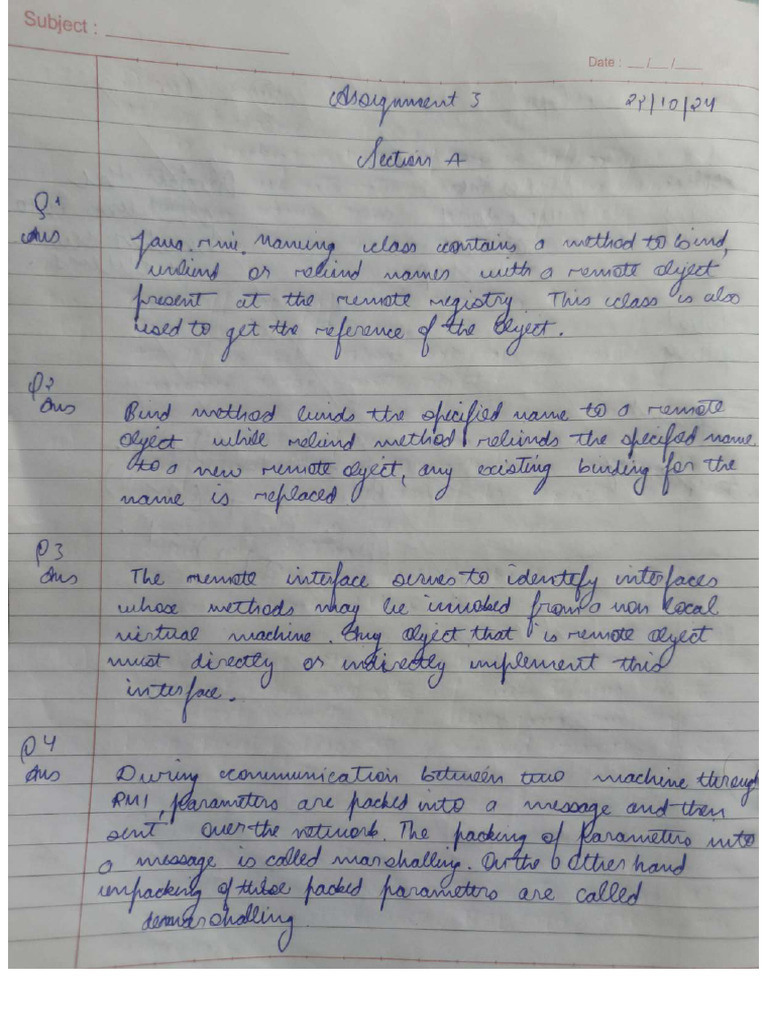 Subject :
Date : __/__/__
Assignment 3
22/10/24
Section A
Q1
Ans Java.rmi.Naming class contains a method to bind,
unbind or rebind names with a remote object
present at the remote registry. This class is also
used to get the reference of the object.
Q2
Ans Bind method binds the specified name to a remote
object while rebind method rebinds the specified name
to a new remote object, any existing binding for the
name is replaced
Q3
Ans The remote interface serves to identify interfaces
whose methods may be invoked from a non local
virtual machine. Any object that is remote object
must directly or indirectly implement this
interface.
Q4
Ans During communication between two machine through
RMI, parameters are packed into a message and then
sent over the network. The packing of parameters into
a message is called marshalling. On the other hand
unpacking of these packed parameters are called
demarshalling